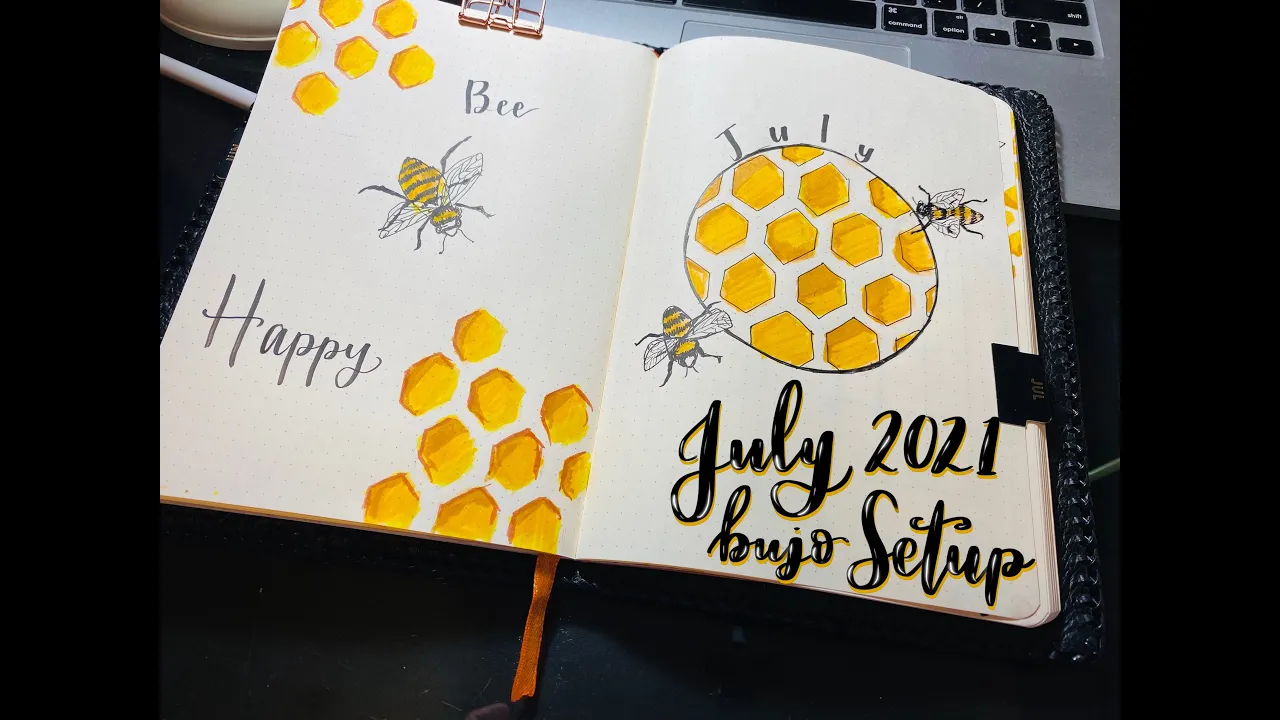 Bee
Happy
July
July 2021
bujo Setup
JUL
command
option
shift
⌘
alt